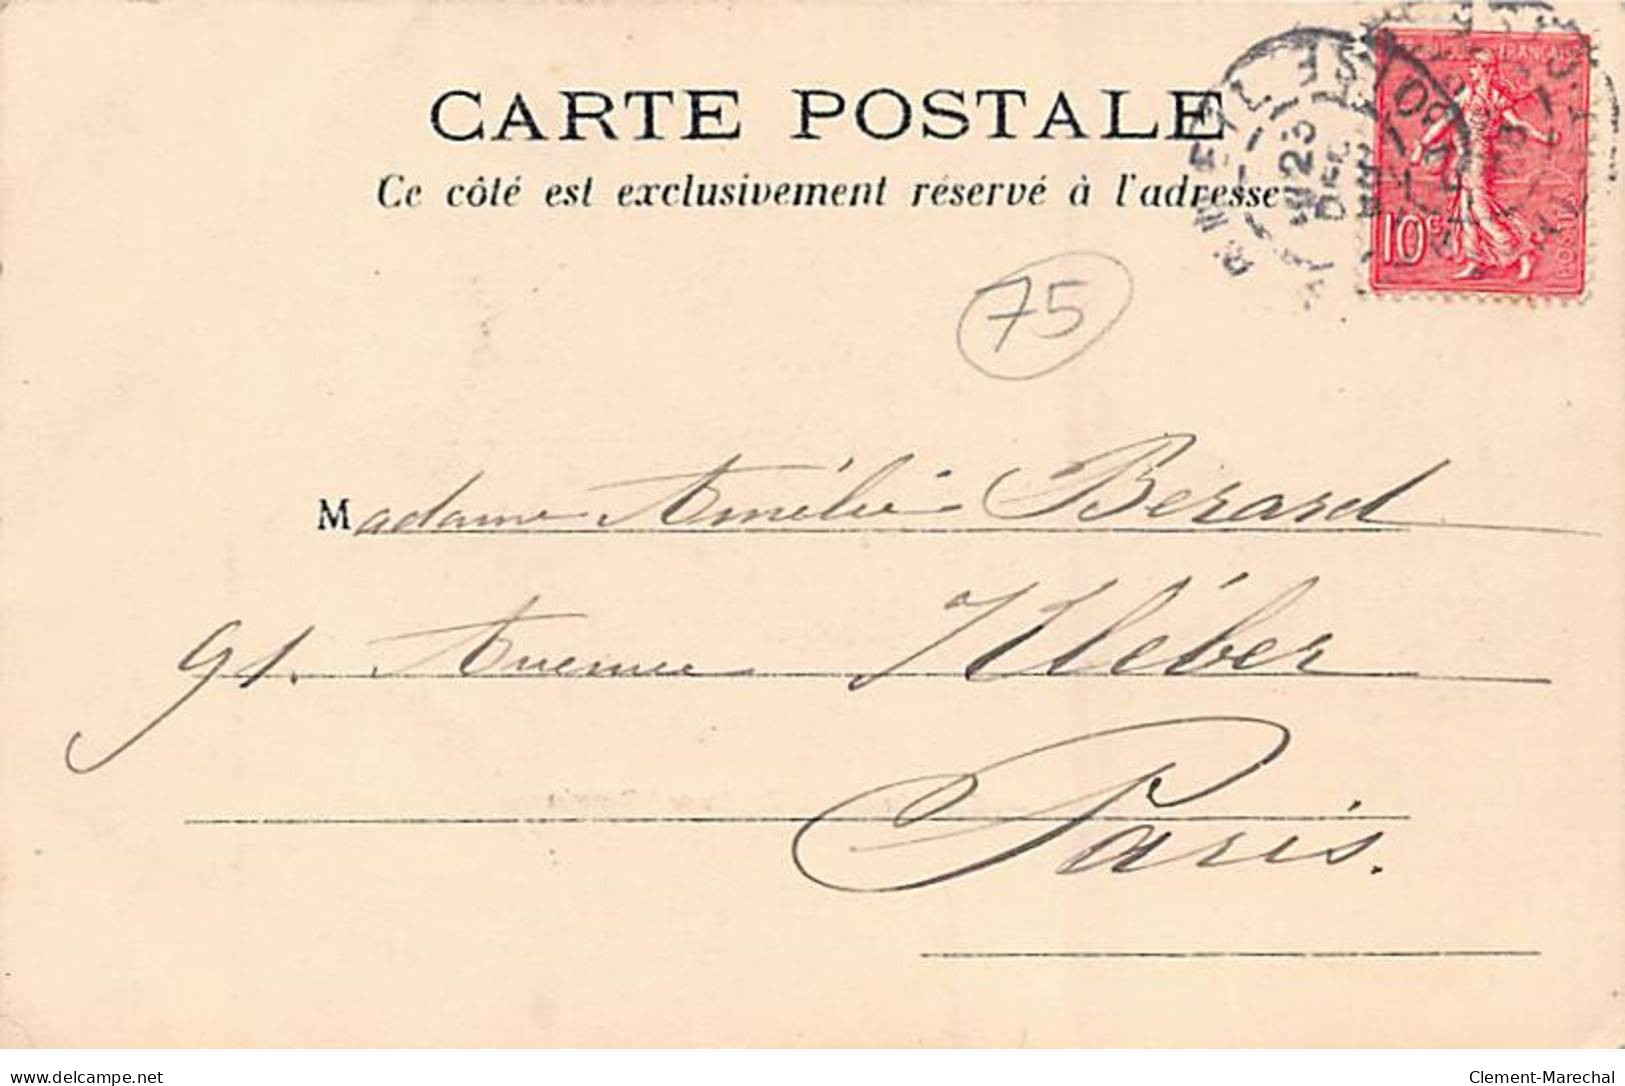 CARTE POSTALE
Ce côté est exclusivement réservé à l'adresse
FRANÇAISE
23
DEC
10c
POSTES
75
Madame Amélie Berard
91. Avenue Kléber
Paris.
delcampe.net
Clement-Marechal